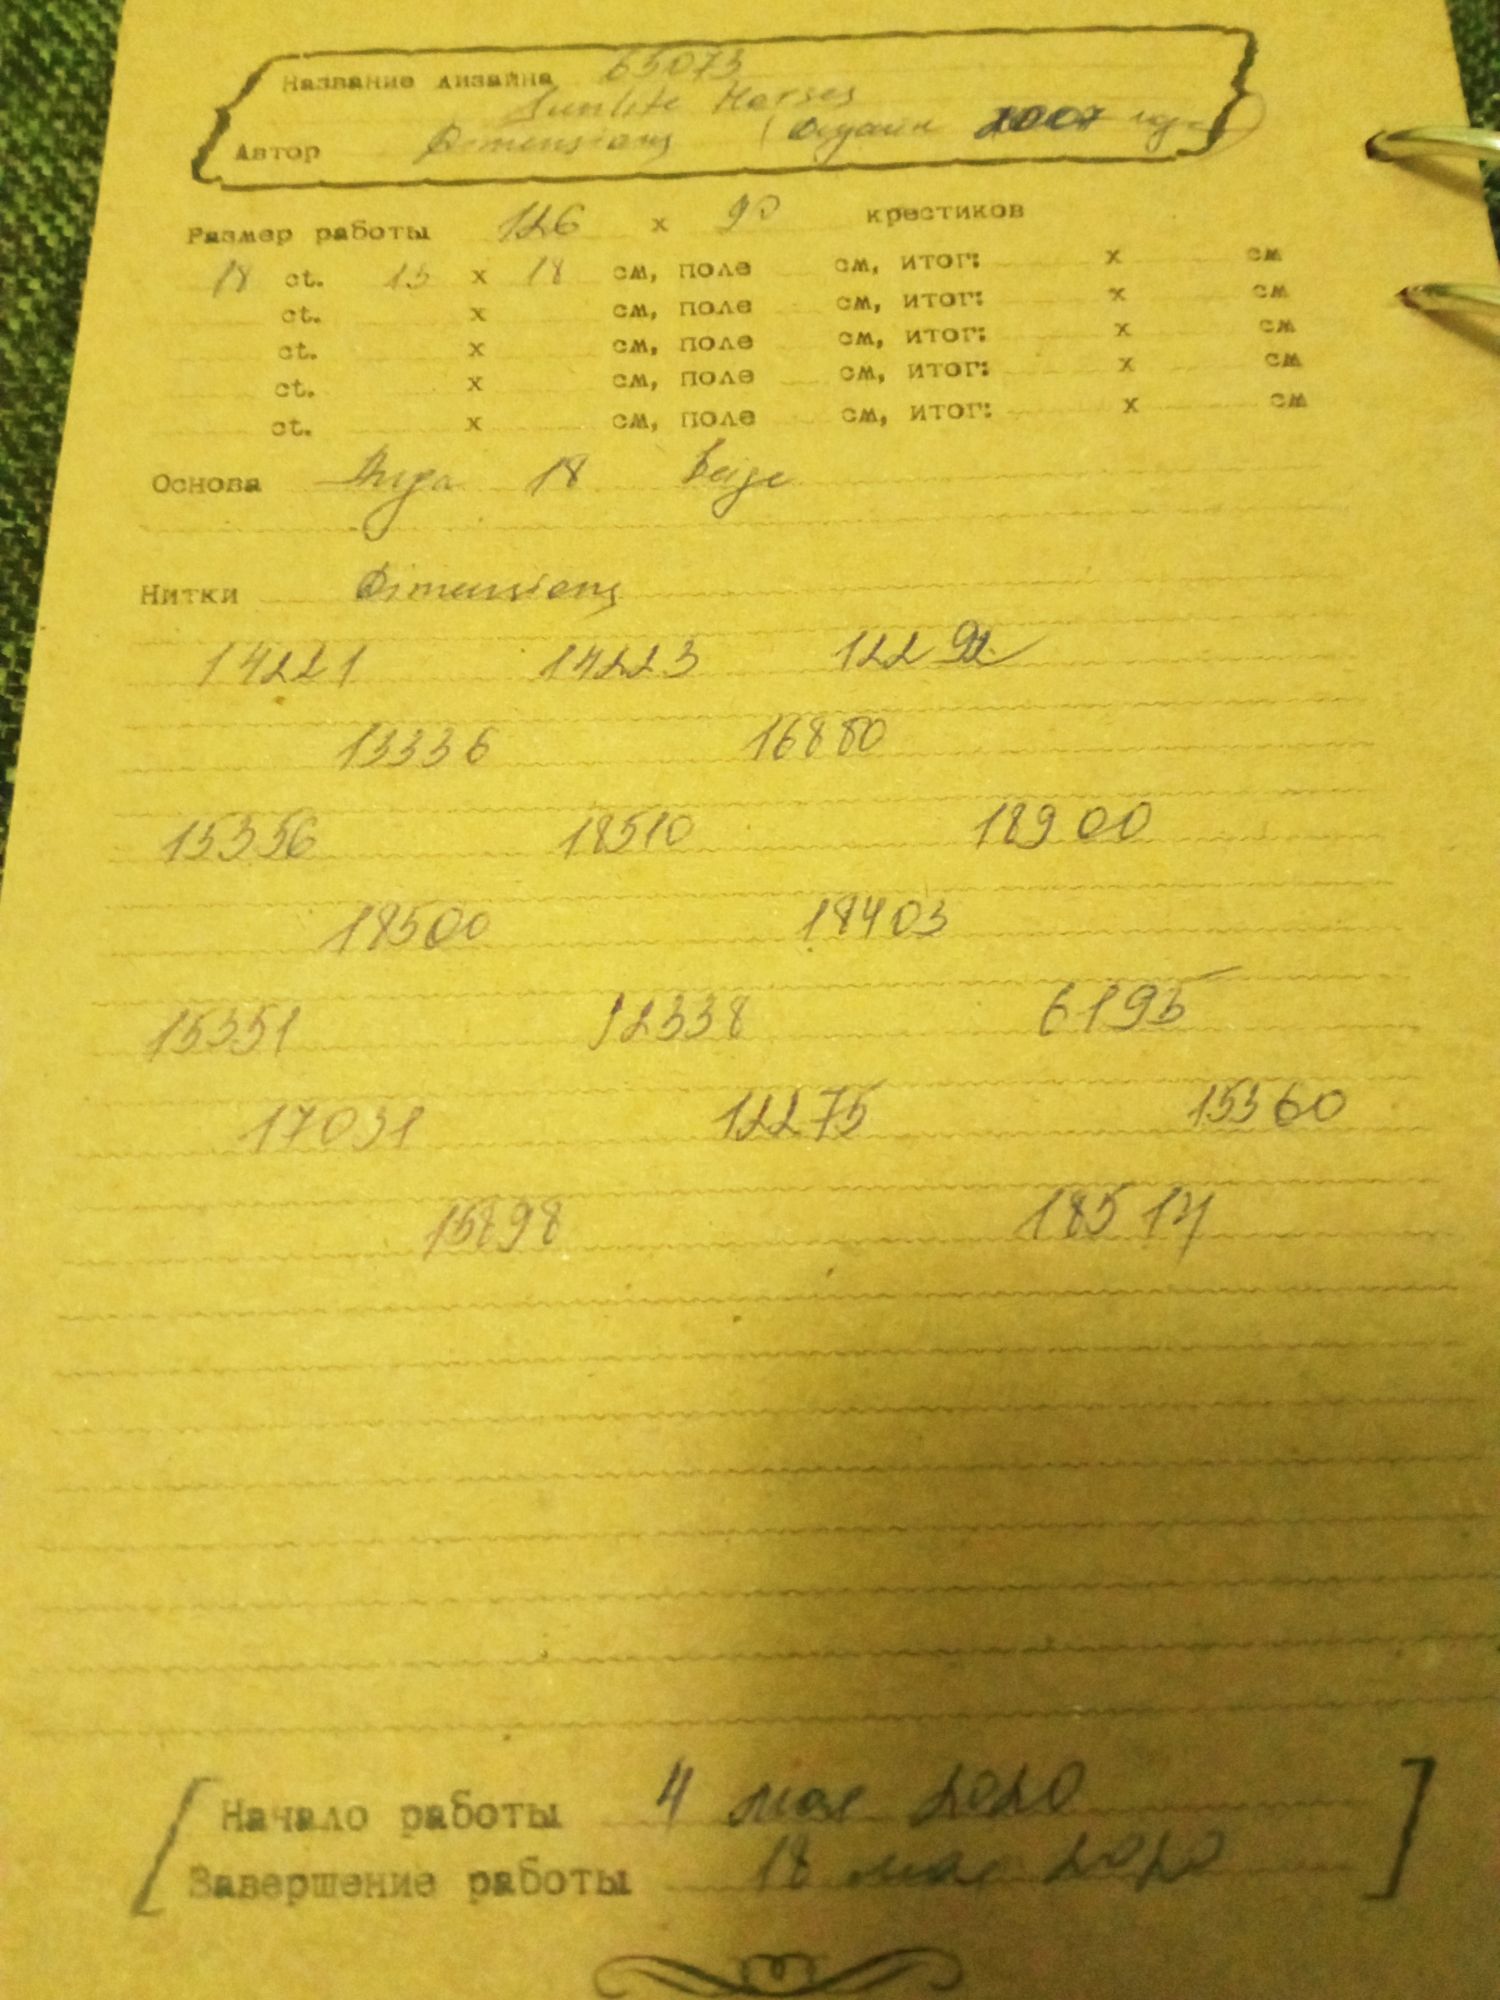 Название дизайна 65073
Sunlite Horses
Автор Dimensions (Дизайн 2007
Размер работы 126 x 90 крестиков
18 ct. 13 x 18 см, поле см, итог: x см
ct. x см, поле см, итог: x см
ct. x см, поле см, итог: x см
ct. x см, поле см, итог: x см
ct. x см, поле см, итог: x см
Основа Аида 18 beige
Нитки Dimensions
14221 14223 12292
13336 16880
15356 18510 18900
18500 18403
15351 12338 6195
17031 12275 15360
15898 18514
Начало работы 4 мая 2020
Завершение работы 18 мая 2020